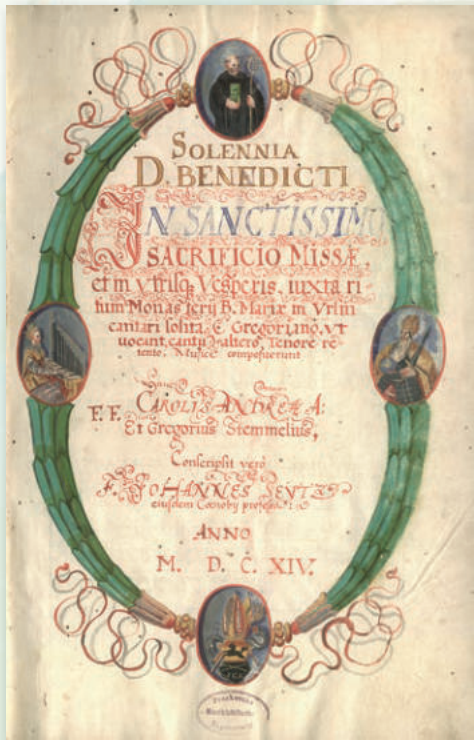 SOLENNIA
D. BENEDICTI
IN SANCTISSIMO
SACRIFICIO MISSÆ,
et in vtrisq; Vesperis, iuxta ri-
tum Monasterij B. Mariæ in Vrsin
cantari solita, E Gregoriano, vt
uocant, cantu, altero, Tenore re-
tento, Musicè composuerunt
F. F. CAROLVS ANDREÆ A:
Et Gregorius Stemmelius,
Conscripsit verò
F. IOHANNES
eiusdem Cœnoby professus
ANNO
M. D. C. XIV.
Proskesche
Musikbibliothek